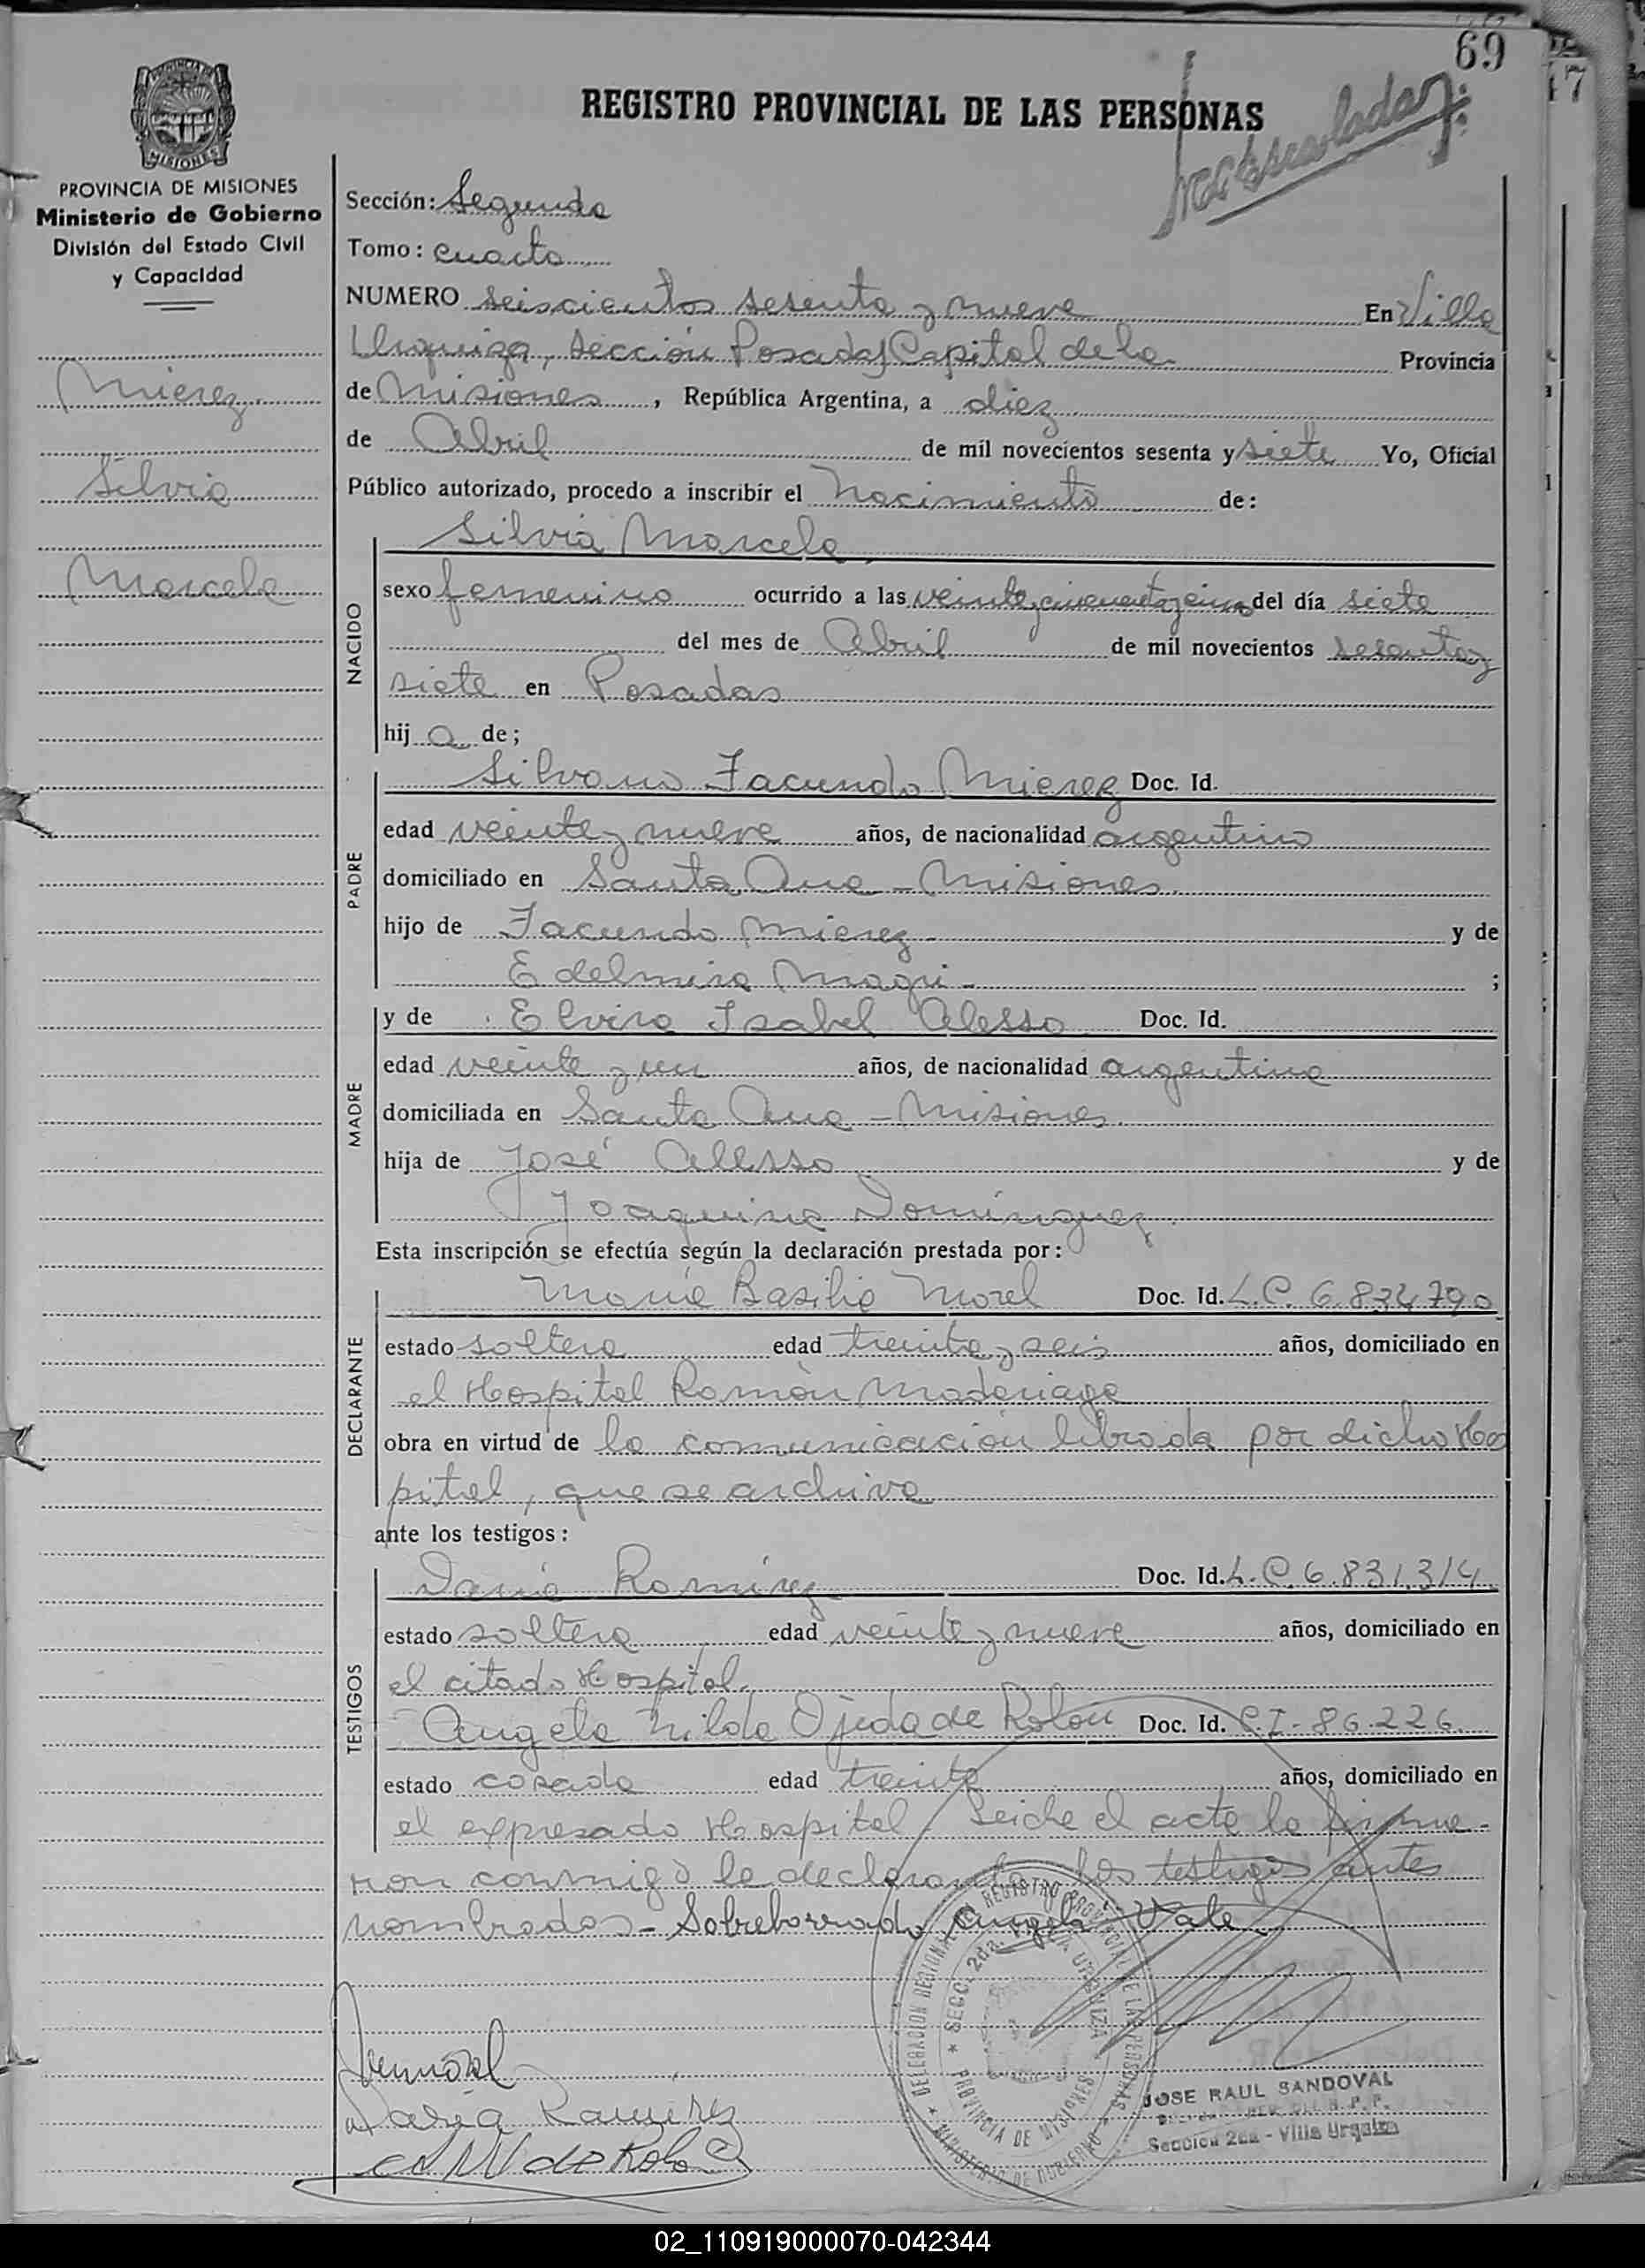 69
17
REGISTRO PROVINCIAL DE LAS PERSONAS
MISIONES
PROVINCIA DE MISIONES
Ministerio de Gobierno
División del Estado Civil
y Capacidad
Mierez
Silvia
Marcela
Sección: Segunda
Tomo: cuarto
NUMERO seiscientos sesenta y nueve En Villa
Urquiza, Sección Posadas Capital de la Provincia
de Misiones, República Argentina, a diez
de Abril de mil novecientos sesenta y siete Yo, Oficial
Público autorizado, procedo a inscribir el nacimiento de:
NACIDO
Silvia Marcela
sexo femenino ocurrido a las veinte, cincuenta y cinco del día siete
del mes de Abril de mil novecientos sesenta y
siete en Posadas
hij a de;
PADRE
Silvano Facundo Mierez Doc. Id.
edad veinte y nueve años, de nacionalidad argentino
domiciliado en Santa Ana - Misiones
hijo de Facundo Mierez y de
Edelmira Maqui - ;
MADRE
y de Elvira Isabel Alesso Doc. Id.
edad veinte y un años, de nacionalidad argentina
domiciliada en Santa Ana - Misiones.
hija de José Alesso y de
Joaquina Domínguez.
Esta inscripción se efectúa según la declaración prestada por:
DECLARANTE
María Basilia Morel Doc. Id. L.C. 6.834.790
estado soltera edad treinta y seis años, domiciliado en
el Hospital Ramón Madariaga
obra en virtud de la comunicación librada por dicho Hos
pital, que se archiva
ante los testigos:
TESTIGOS
Daria Ramírez Doc. Id. L.C. 6.831.314
estado soltera edad veinte y nueve años, domiciliado en
el citado Hospital.
Angela Nilda Ojeda de Rolon Doc. Id. C.I- 86.226
estado casada edad treinta años, domiciliado en
el expresado Hospital. Leída el acta la firma-
ron conmigo la declarante y los testigos antes
nombrados - Sobreborrado Angela - Vale
Daria Ramirez
de Rolon
DELEGACION REGIONAL REGISTRO PROVINCIAL DE LAS PERSONAS
MINISTERIO DE GOBIERNO
SECC. 2da. URQUIZA
PROVINCIA DE MISIONES
JOSE RAUL SANDOVAL
Sección 2da - Villa Urquiza
02_110919000070-042344